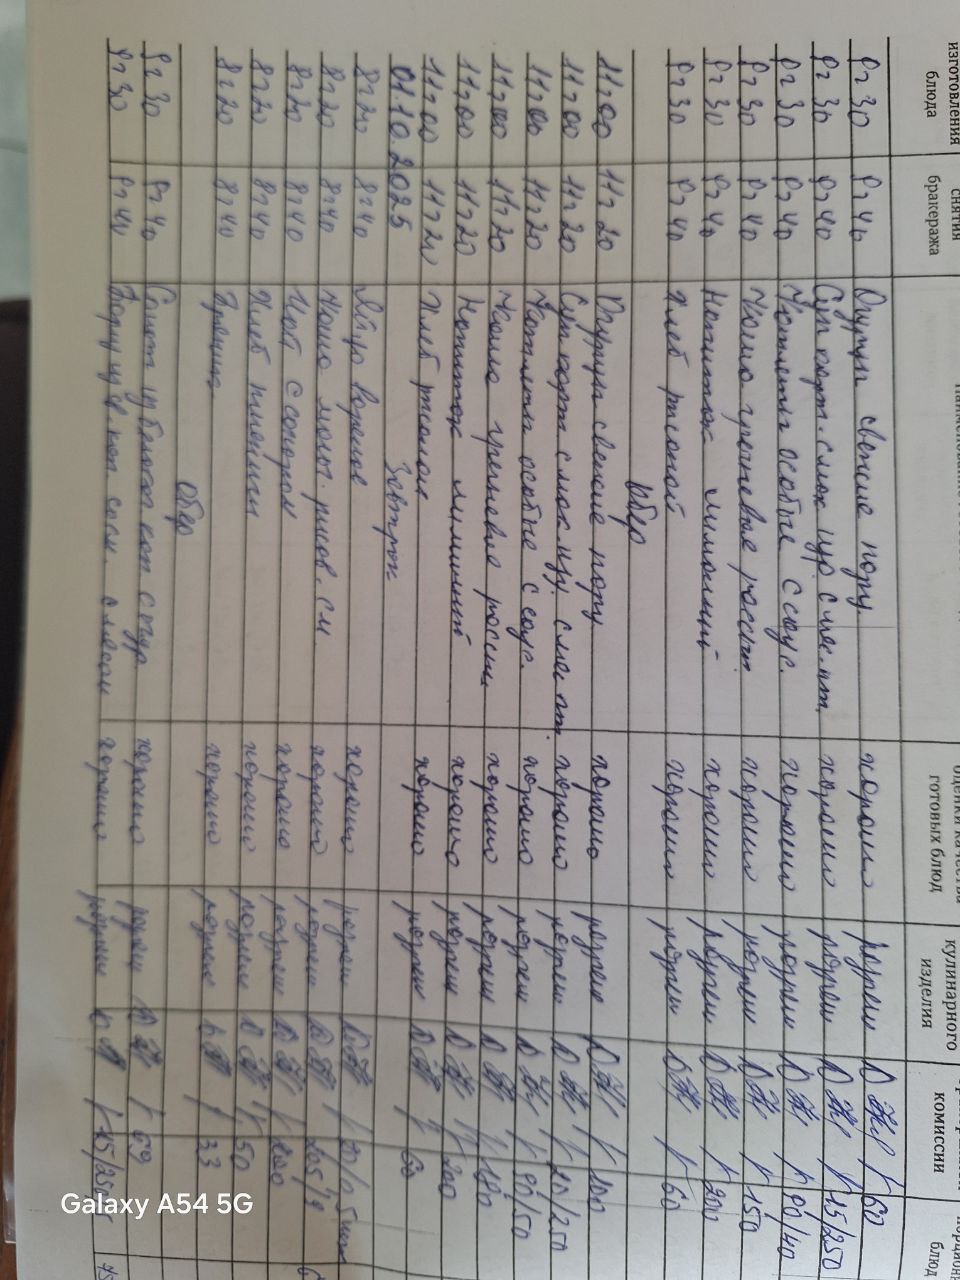 изготовления блюда снятия бракеража оценки качества готовых блюд кулинарного изделия комиссии блюд
9ч 30 9ч 40 Огурцы свежие порц хорошо разреш 60
9ч 30 9ч 40 Суп карт. с мак. изд. с мяс. пт. хорошо разреш 15/250
9ч 30 9ч 40 Котлеты особые с соус. хорошо разреш 90/40
9ч 30 9ч 40 Каша гречневая рассып. хорошо разреш 150
9ч 30 9ч 40 Напиток лимонный хорошо разреш 200
9ч 30 9ч 40 Хлеб ржаной хорошо разреш 60
Обед
11ч 00 11ч 20 Огурцы свежие порц хорошо разреш 100
11ч 00 11ч 20 Суп карт с мак изд. с мяс пт. хорошо разреш 20/250
11ч 00 11ч 20 Котлеты особые с соус. хорошо разреш 90/50
11ч 00 11ч 20 Каша гречневая рассып хорошо разреш 180
11ч 00 11ч 20 Напиток лимонный хорошо разреш 200
11ч 00 11ч 20 Хлеб ржаной хорошо разреш 60
01.10.2025 Завтрак
8ч 20 8ч 40 Яйцо вареное хорошо разреш
8ч 20 8ч 40 Каша молоч. рисов. с м хорошо разреш 205/
8ч 20 8ч 40 Чай с сахаром хорошо разреш 200
8ч 20 8ч 40 Хлеб пшенич хорошо разреш 50
8ч 20 8ч 40 хорошо разреш 33
Обед
9ч 30 9ч 40 Салат из белокоч кап с огур. хорошо разреш 69
9ч 30 9ч 40 Борщ из св кап. со см. с мясом хорошо разреш 15/250
Galaxy A54 5G